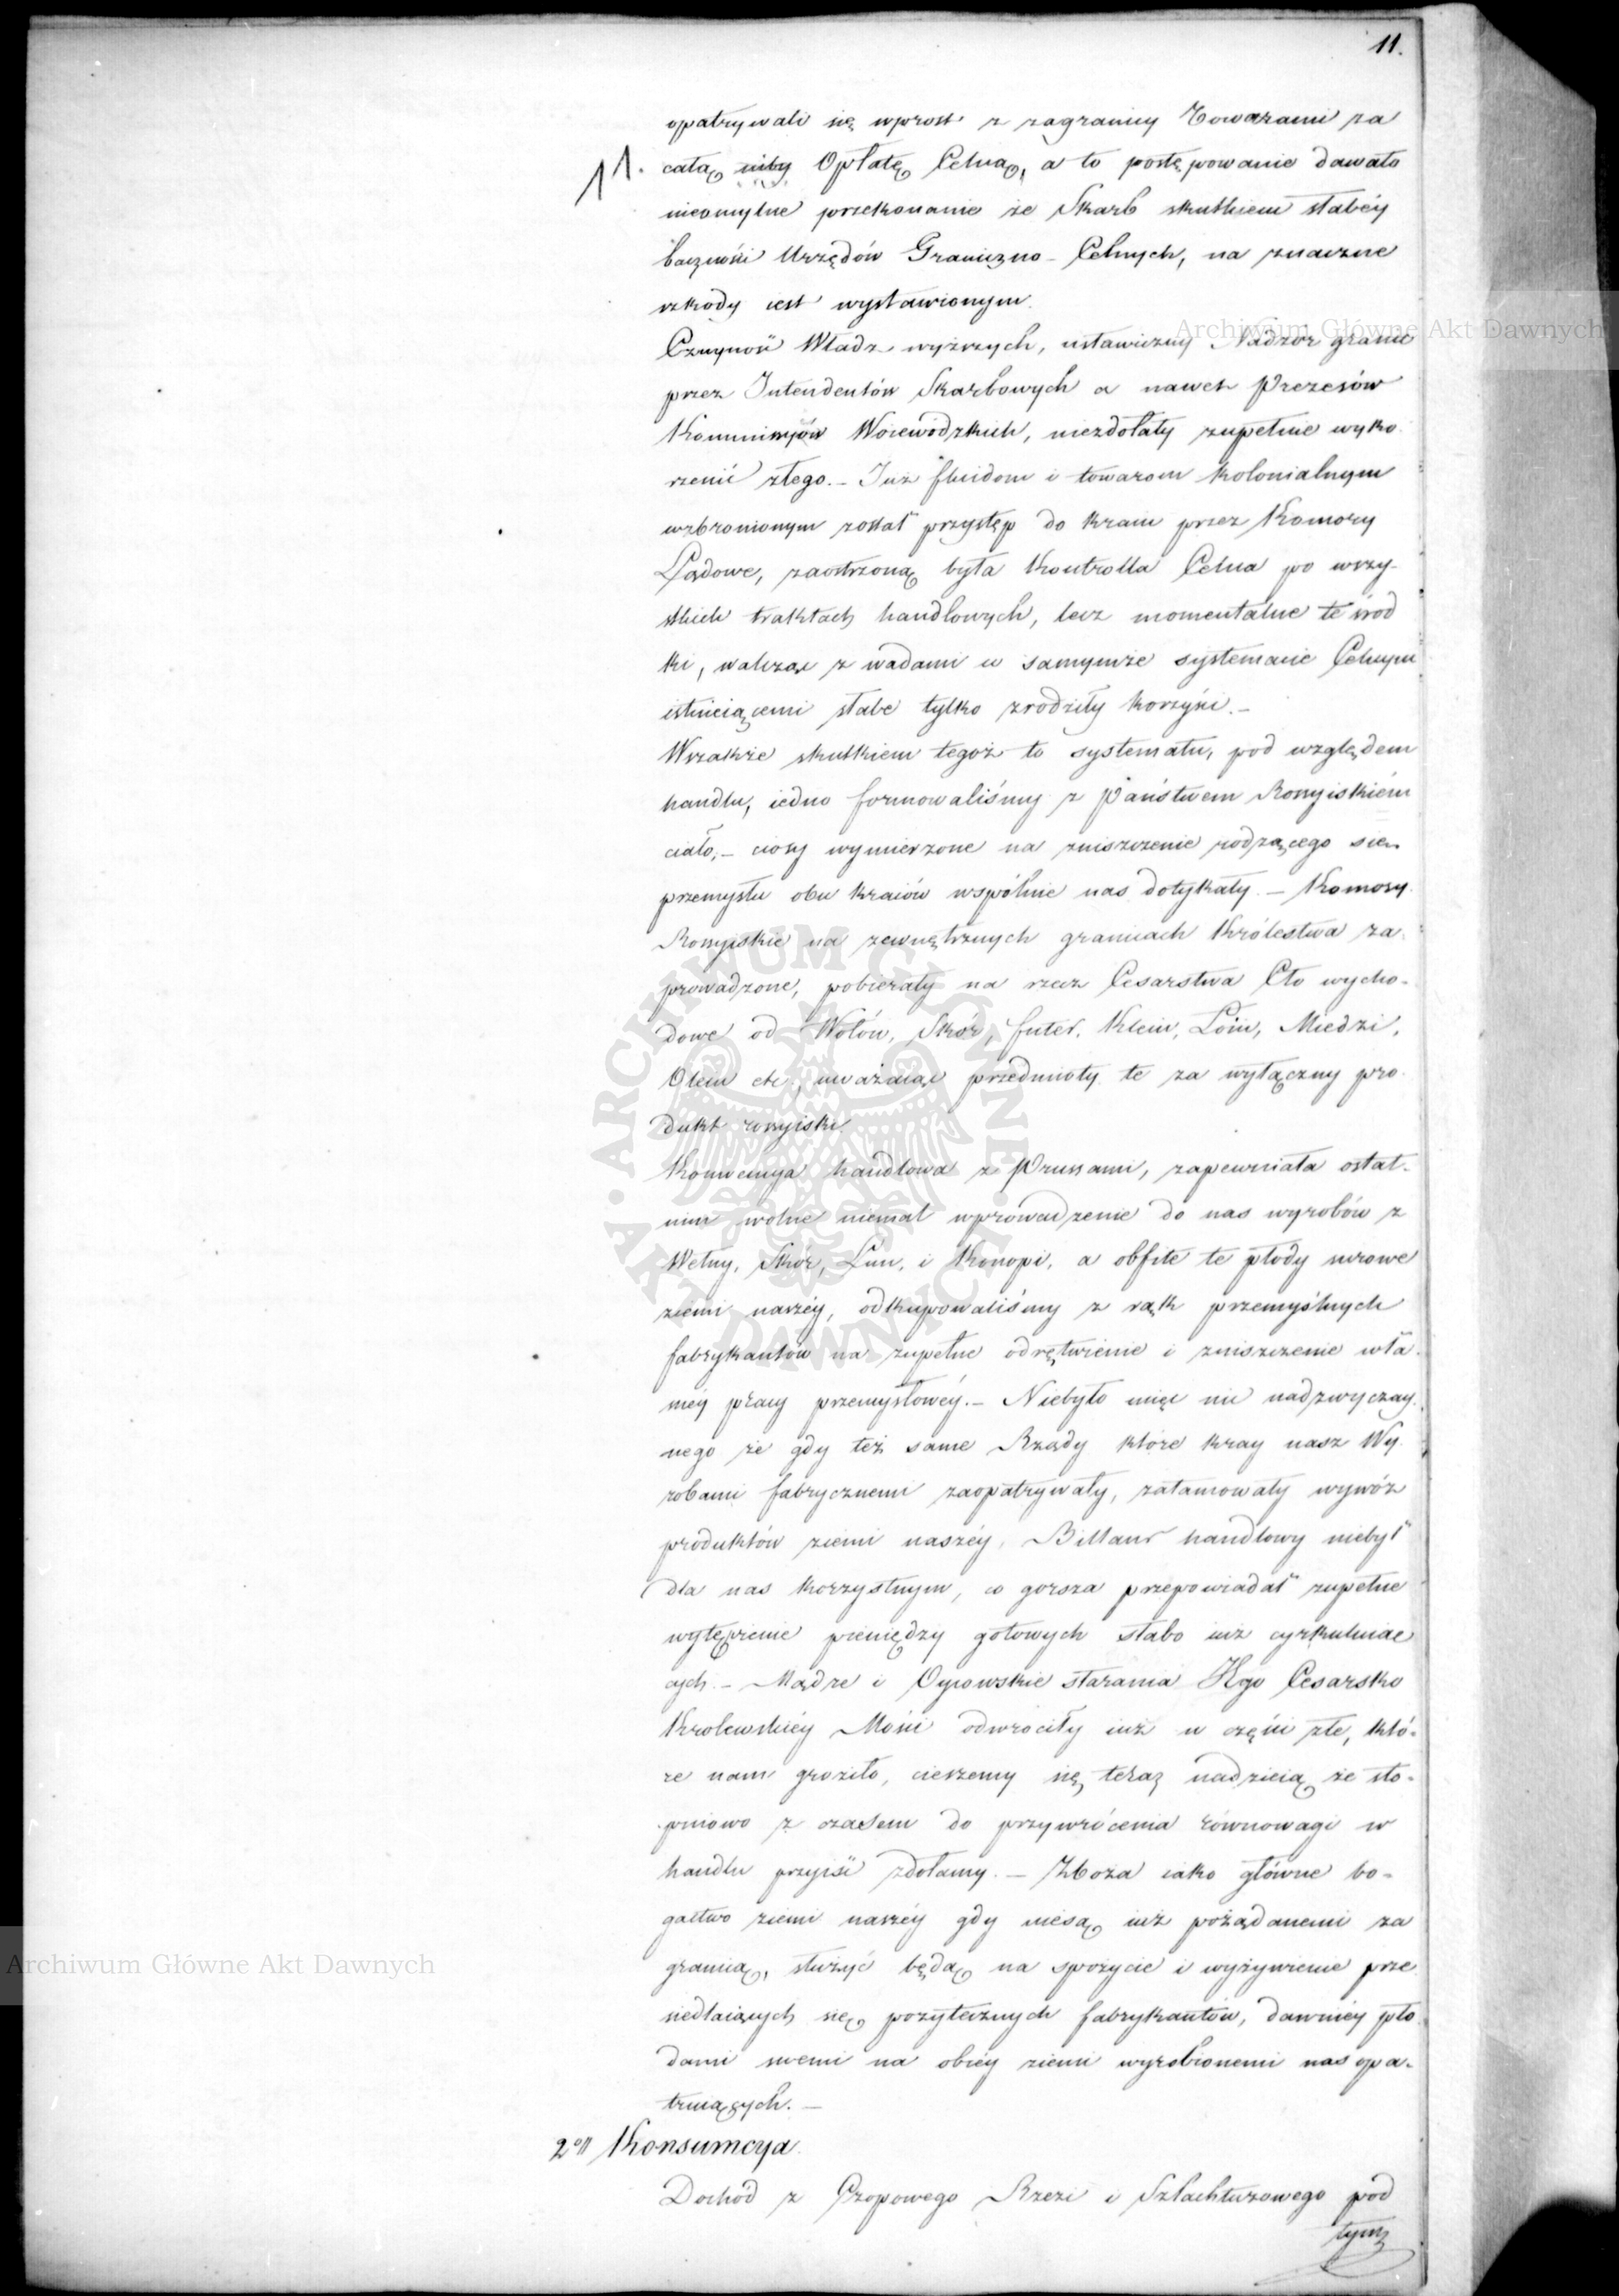 11.
opatrywali się wprost z zagranicy Towarami za
11. całą niby Opłatę Celną, a to postępowanie dawało
nieomylne przekonanie że Skarb skutkiem słabéy
baczności Urzędów Graniczno-Celnych, na znaczne
szkody iest wystawionym.
Czynność Władz wyższych, ustawiczny Nadzór granic
przez Intendentów Skarbowych a nawet Prezesów
Kommissyów Woiewódzkich, niezdołały zupełnie wyko-
rzenić złego. – Już fluidom i towarom kolonialnym
wzbronionym został przystęp do kraiu przez Komory
Lądowe, zaostrzoną była Kontrolla Celna po wszy-
stkich traktach handlowych, lecz momentalne te środ
ki, walcząc z wadami w samymże systemacie Celnym
istnieiącemi słabe tylko zrodziły korzyści. –
Wszakże skutkiem tegoż to systematu, pod względem
handlu, iedno formowaliśmy z Państwem Rossyiskiém
ciało, – ciosy wymierzone na zniszczenie rodzącego się
przemysłu obu kraiów wspólnie nas dotykały. – Komory
Rossyiskie na zewnętrznych granicach Królestwa za-
prowadzone, pobierały na rzecz Cesarstwa Cło wycho-
dowe od Wołów, Skór, futer, Kleiu, Łoiu, Miedzi,
Oleiu etc., uważaiąc przedmioty te za wyłączny pro-
dukt rossyiski.
Konwencya handlowa z Prussami, zapewniała ostat-
nim wolne niemal wprowadzenie do nas wyrobów z
Wełny, Skór, Lnu, i Konopi, a obfite te płody surowe
ziemi naszéy, odkupowaliśmy z rąk przemyślnych
fabrykantów na zupełne odrętwienie i zniszczenie wła-
snéy pracy przemysłowéy. – Niebyło więc nic nadzwyczay-
nego że gdy też same Rządy które kray nasz Wy-
robami fabrycznemi zaopatrywały, zatamowały wywóz
produktów ziemi naszéy, Billans handlowy niebył
dla nas korzystnym, co gorsza przepowiadał zupełne
wytępienie pieniędzy gotowych słabo iuż cyrkuluiac
cych. – Mądre i Oycowskie starania JKgo Cesarsko
Krolewskiéy Mości odwróciły iuż w części złe, któ-
re nam groziło, cieszemy się teraz nadzieią że sto-
pniowo z czasem do przywrócenia równowagi w
handlu przyiść zdołamy. – Zboża iako główne bo-
gactwo ziemi naszéy gdy niesą iuż pożądanemi za
granicą, służyć będą na spożycie i wyżywienie prze
siedlaiących się pożytecznych fabrykantów, dawniéy pło
dami swemi na obcéy ziemi wyrobionemi nas opa-
truiących. –
2o Konsumcya.
Dochód z Czopowego Rzezi i Szlachtuzowego pod
tym
Archiwum Główne Akt Dawnych
Archiwum Główne Akt Dawnych
ARCHIWUM GŁÓWNE AKT DAWNYCH